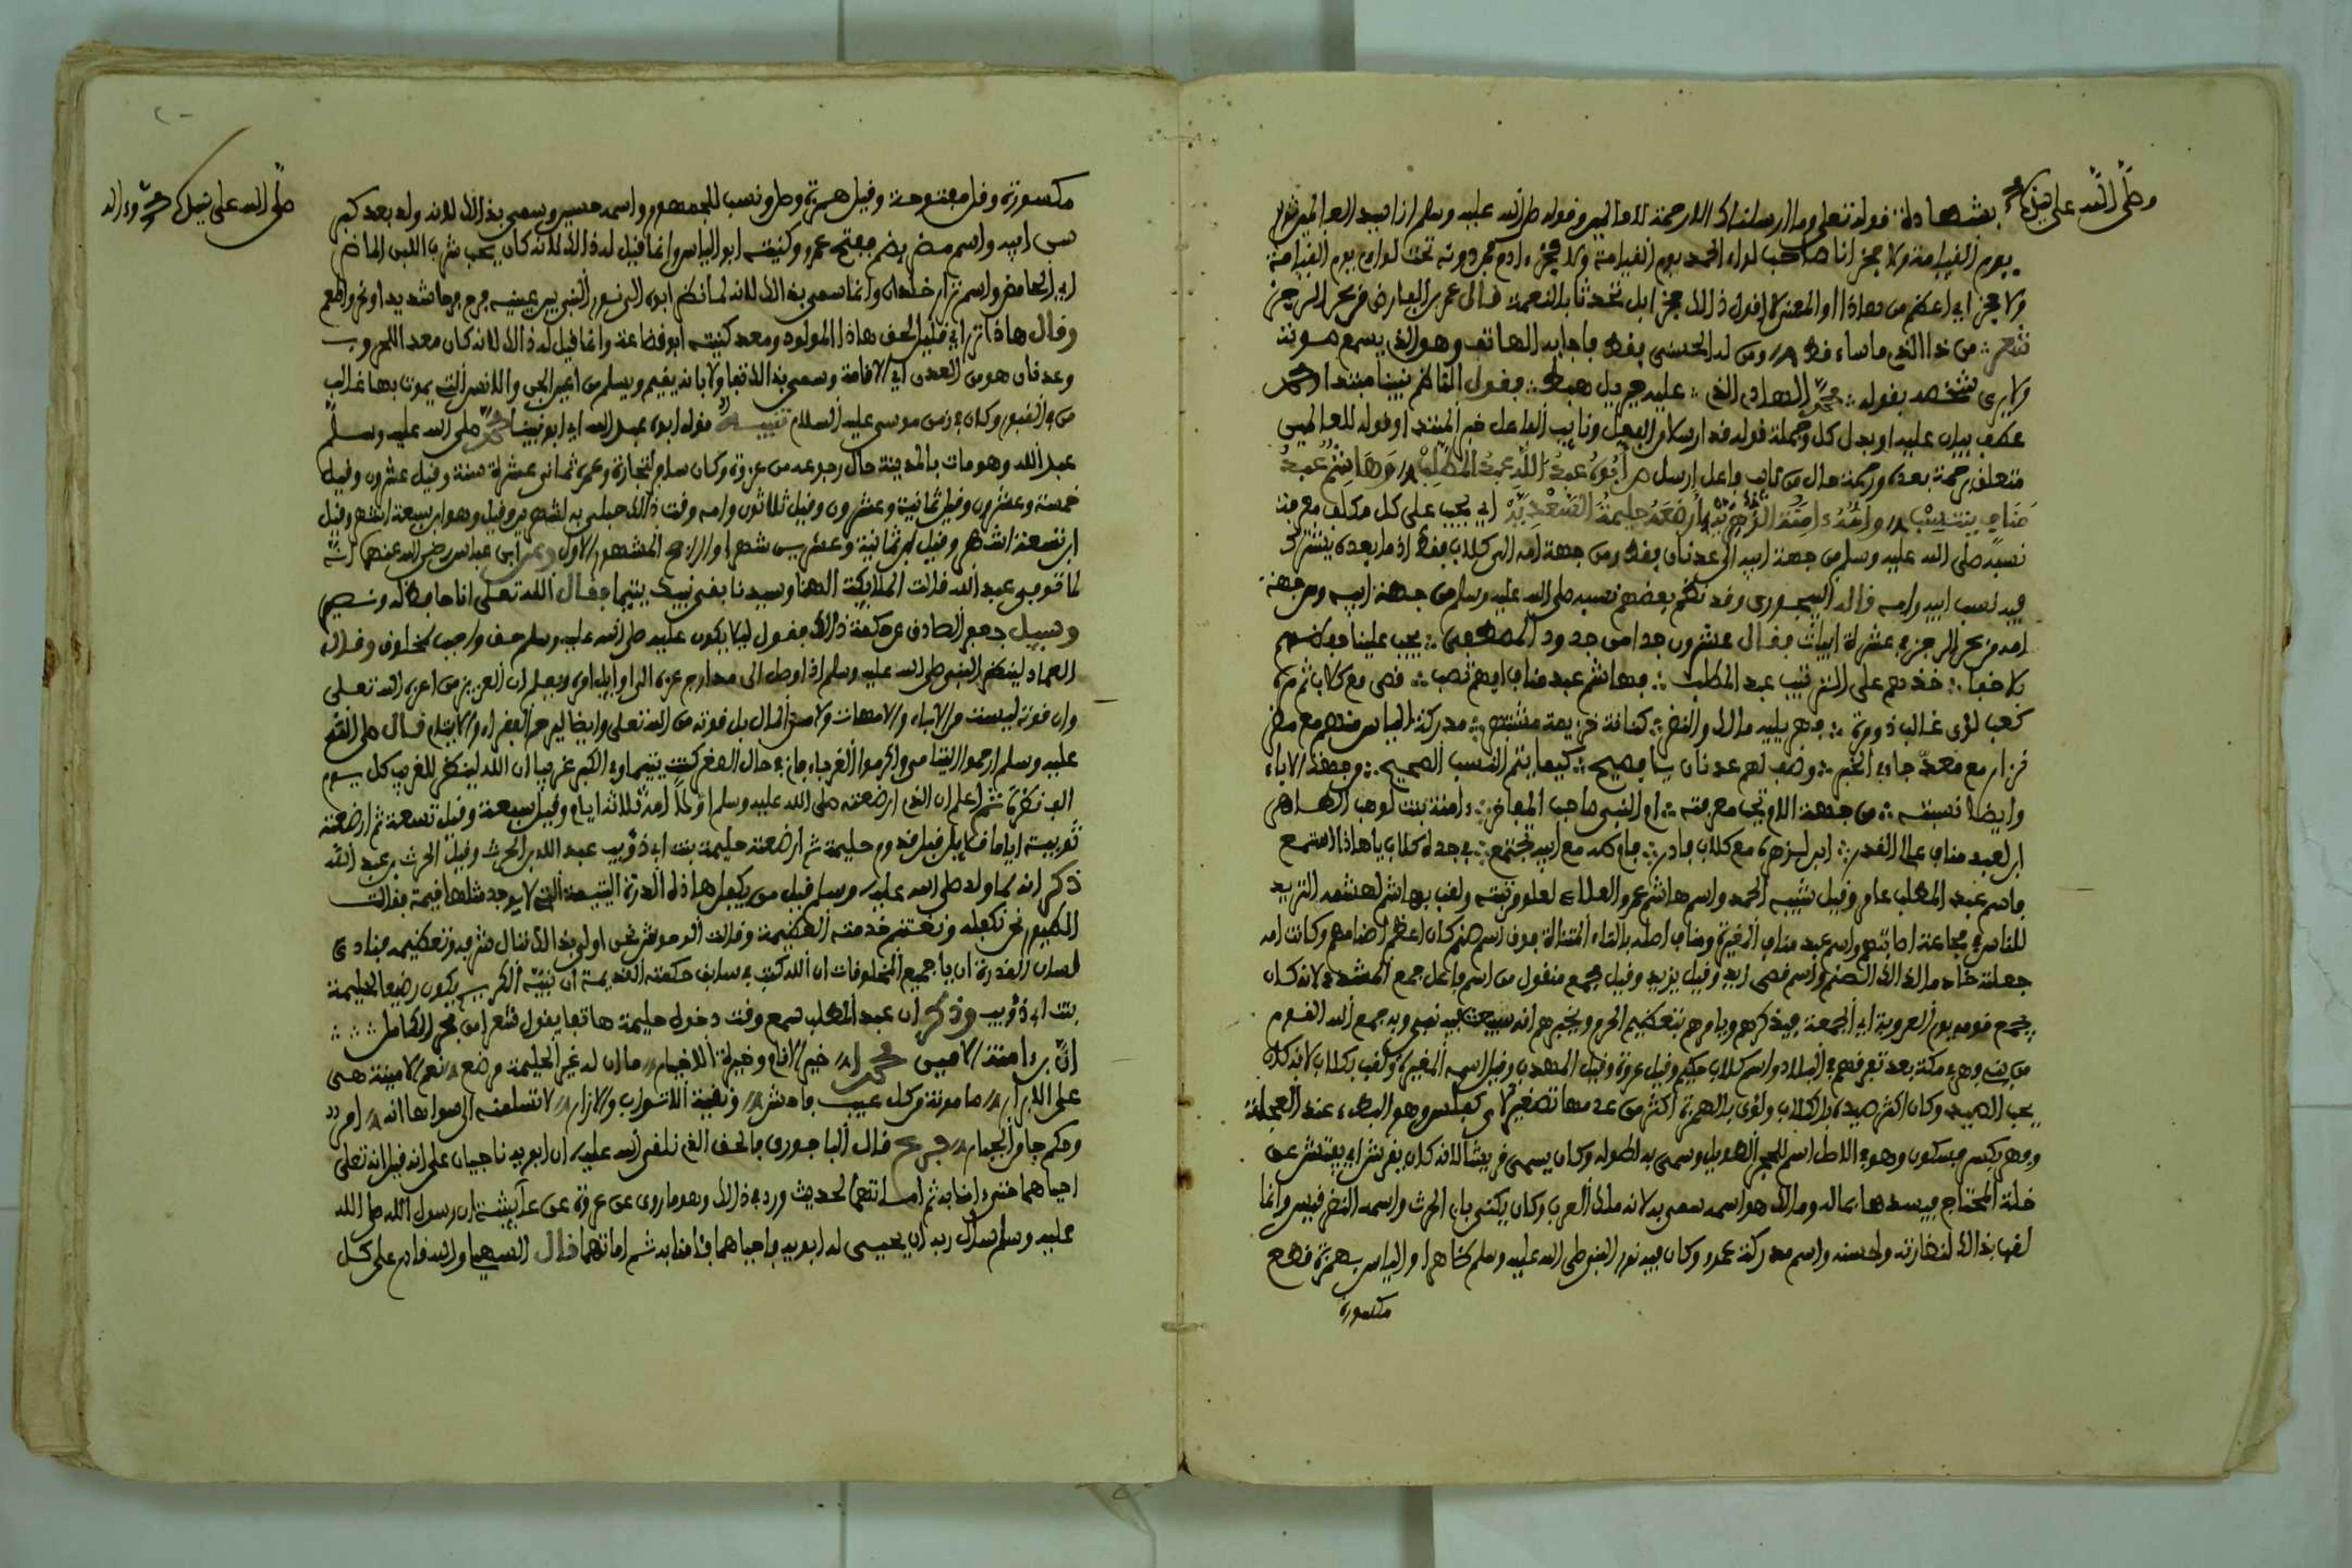 وصلى الله على نبيك محمد
بشهادة قوله تعلى وما ارسلناك الا رحمة للعالمين وقوله صلى الله عليه وسلم انا سيد العالمين
يوم القيامة ولا فخر انا صاحب لواء الحمد يوم القيامة ولا فخر ءادم فمن دونه تحت لواءي يوم القيامة
ولا فخر اي اعظم من هاذا او المعنى لا اقول ذالك فخرا بل تحدثا بالنعمة قال عمر بن الفارض من بحر الرجز
شعر من ذا الذي ما ساء قط ومن له الحسنى فقط فاجابه الهاتف وهو الذي يسمع صوته
ولا يرى شخصه بقوله محمد الهادي الذي عليه جبريل هبط فقول الناظم نبينا مبتدا ومحمد
عطف بيان عليه او بدل كل وجملة قوله قد ارسلا من الفعل ونايب الفاعل خبر المبتدا وقوله للعالمين
متعلق برحمة بعده ورحمة حال من نايب فاعل ارسل ص ابوه عبد الله عبد المطلب وهاشم عبد
مناف ينتسب وامه ءامنة الزهرية ارضعه حليمة السعدية اي يجب على كل مكلف معرفة
نسبه صلى الله عليه وسلم من جهة ابيه الى عدنان فقط ومن جهة امه الى كلاب فقط اذ ما بعده يشترك
فيه نسب ابيه وامه قاله البيجوري وقد نظم بعضهم نسبه صلى الله عليه وسلم من جهة ابيه ومن جهة
امه من بحر الرجز في عشرة ابيات فقال عشرون جدا من جدود المصطفى يجب علينا حفظهم
بلا خفا خذهم على الترتيب عبد المطلب فهاشم عبد مناف افهم تصب قصي مع كلاب ثم مرة
كعب لؤي غالب ذو مرة فهر يليه مالك والنضر كنانة خزيمة مشتهر مدركة الياس منهم مع مضر
نزار مع معد جاء في الخبر وضف لهم عدنان يا فصيح فبها يتم النسب الصحيح وجهة الاباء
وايضا نسبته من جهة الام تجب معرفته ام النبي صاحب المفاخر ءامنة بنت لوهب الطاهر
ابن لعبد مناف عالي القدر ابن لزهرة مع كلاب فادر
فاسم عبد المطلب عامر وقيل شيبة الحمد واسم هاشم عمرو العلاء لعلو مرتبته ولقب بهاشم لهشمه الثريد
للناس في مجاعة اصابتهم واسم عبد مناف المغيرة ومناف اصله بالتاء المثناة فوق اسم صنم كان اعظم اصنامهم وكانت امه
جعلته خادما لذالك الصنم واسم قصي زيد وقيل يزيد وقيل مجمع منقول من اسم فاعل جمع المشدد لانه كان
يجمع قومه يوم العروبة اي الجمعة فيذكرهم ويامرهم بتعظيم الحرم ويخبرهم انه سيبعث فيه نبي وبه جمع الله القوم
من بني فهر في مكة بعد تفرقهم في البلاد واسم كلاب حكيم وقيل عروة وقيل المهذب وقيل اسمه المغيرة ولقب بكلاب لانه كان
يحب الصيد وكان اكثر صيده بالكلاب ولؤي بالهمزة اكثر من عدمها تصغير لأي كفلس وهو البطء عند العجلة
وفهر بكسر فسكون وهو في الاصل اسم للحجر الطويل وسمي به لطوله وكان يسمى قريشا لانه كان يقرش اي يفتش عن
خلة المحتاج فيسدها بماله ومالك هو اسمه سمي به لانه ملك العرب وكان يكنى بابي الحرث واسم النضر قيس وانما
لقب بذالك لنضارته ولحسنه واسم مدركة عمرو وكان فيه نور النبي صلى الله عليه وسلم ظاهرا والياس بهمزة قطع
مكسورة
صلى الله على نبيك محمد وءاله
مكسورة وقيل مفتوحة وقيل همزة وصل ونسب للجمهور واسمه حسين وسمي بذالك لانه ولد بعد كبر
سن ابيه واسم مضر بضم ففتح عمرو وكنيته ابو الياس وانما قيل له ذالك لانه كان يحب شرب اللبن الماضر
اي الحامض واسم نزار خلدان وانما سمي بذالك لانه لما نظر ابوه الى نور النبي بين عينيه فرح فرحا شديدا ونحر واطعم
وقال هاذا نزر اي قليل لحق هاذا المولود ومعد كنيته ابو قضاعة وانما قيل له ذالك لانه كان معدا للحروب
وعدنان هو من العدن اي الاقامة وسمي بذالك تفاؤلا بانه يقيم ويسلم من اعين الجن والانس التي يموت بها غالب
من في القبور وكان في زمن موسى عليه السلام تنبيه قوله ابوه عبد الله اي ابو نبينا محمد صلى الله عليه وسلم
عبد الله وهو مات بالمدينة حال رجوعه من غزوة وكان سافر لتجارة وعمره ثماني عشرة سنة وقيل عشرون وقيل
خمسة وعشرون وقيل ثمانية وعشرون وقيل ثلاثون وامه وقت ذالك حبلى به لشهرين وقيل وهو ابن سبعة اشهر وقيل
ابن تسعة اشهر وقيل ابن ثمانية وعشرين شهرا والراجح المشهور الاول وعن ابن عباس رضي الله عنهما انه
لما توفي عبد الله قالت الملايكة الهنا وسيدنا بقي نبيك يتيما فقال الله تعلى انا حافظ له ونصير
وسيل جعفر الصادق عن حكمة ذالك فقال ليلا يكون عليه صلى الله عليه وسلم حق واجب لمخلوق وقال
العماد لينظر النبي صلى الله عليه وسلم اذا وصل الى مدارج عزه الى اوايل امره ويعلم ان العزيز من اعزه الله تعلى
وان قوته ليست من الاباء والامهات ولا من المال بل قوته من الله تعلى وايضا ليرحم الفقراء والايتام قال صلى الله
عليه وسلم ارحموا اليتامى واكرموا الغرباء فاني في حال الصغر كنت يتيما وفي الكبر غريبا ان الله لينظر للغريب كل يوم
الف نظرة ثم اعلم ان الذي ارضعته صلى الله عليه وسلم اولا امه ثلاثة ايام وقيل سبعة وقيل تسعة ثم ارضعته
ثويبة اياما قلايل قبل قدوم حليمة ثم ارضعته حليمة بنت ابي ذؤيب عبد الله بن الحرث وقيل الحرث بن عبد الله
ذكر انه لما ولد صلى الله عليه وسلم قيل من يكفل هاذه الدرة اليتيمة التي لا يوجد مثلها قيمة فقالت
الطيور نحن نكفله ونغتنم خدمته العظيمة وقالت الوحوش نحن اولى بذالك ننال شرفه وتعظيمه فنادى
لسان القدرة ان يا جميع المخلوقات ان الله كتب في سابق حكمته القديمة ان نبيه الكريم يكون رضيعا لحليمة
بنت ابي ذؤيب وذكر ان عبد المطلب سمع وقت دخول حليمة هاتفا يقول شعرا من بحر الكامل
ان ابن ءامنة الامين محمدا خير الانام وخيرة الاخيار ما ان له غير الحليمة مرضع نعم الامينة هي
على الابرار مامونة من كل عيب فاحش ونقية الاثواب والازار لا تسلمنه الى سواها انه امر
وحكم جا من الجبار فرع قال الباجوري فالحق الذي نلقى الله عليه ان ابويه ناجيان على انه قيل انه تعلى
احياهما حتى ءامنا به ثم اماتهما لحديث ورد في ذالك وهو ما روي عن عروة عن عايشة ان رسول الله صلى الله
عليه وسلم سال ربه ان يحيي له ابويه فاحياهما فامنا به ثم اماتهما قال السهيلي والله قادر على كل